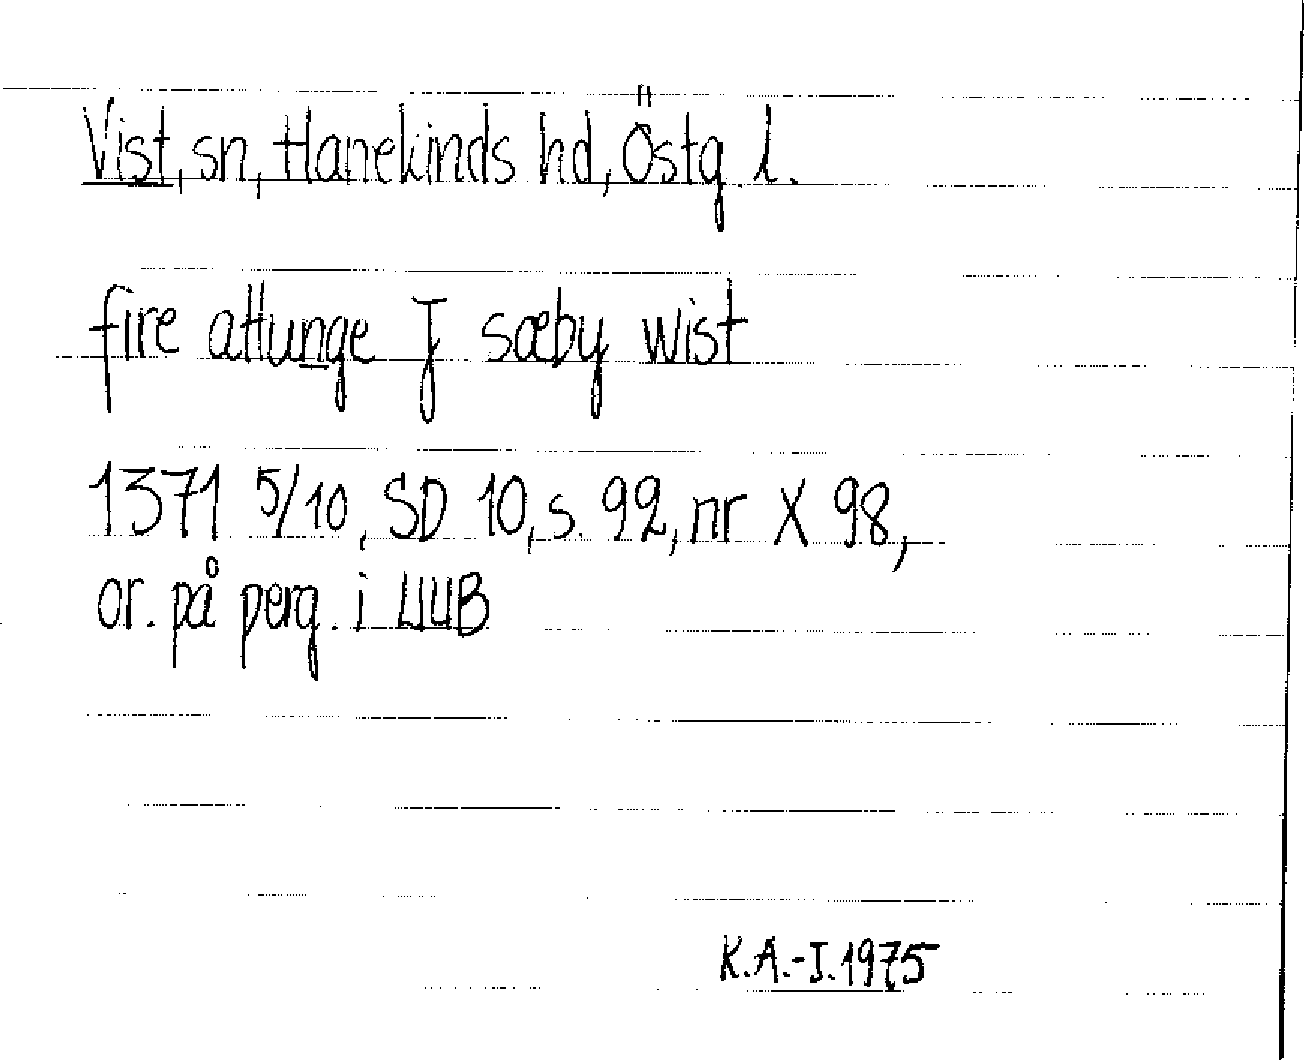 Vist, sn, Hanekinds hd, Östg. l.
fire attunge J sæby wist
1371 5/10, SD 10, s. 92, nr X 98,
or. på perg. i UUB
K.A.-I. 1975